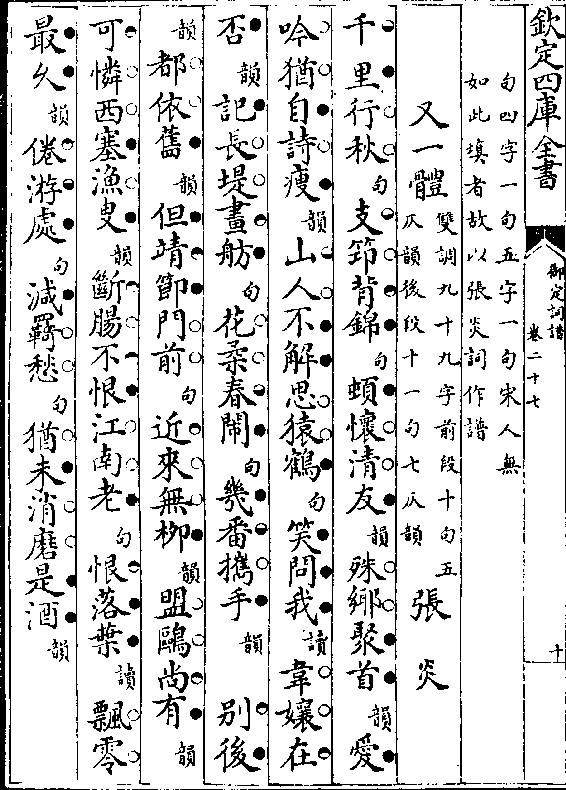 欽定四庫全書
御定詞譜
卷二十七
十
句四字一句五字一句宋人無
如此填者故以張炎詞作譜
又一體 雙調九十九字前段十句五
仄韻後段十一句七仄韻 張炎
千里行秋句支笻背錦句頓懷清友韻殊鄉聚首韻愛
吟猶自詩瘦韻山人不解思猿鶴句笑問我讀韋孃在
否韻記長堤畫舫句花柔春鬧句幾番攜手韻 别後
韻都依舊韻但靖節門前句近來無柳韻盟鷗尚有韻
可憐西塞漁叟韻斷腸不恨江南老句恨落葉讀飄零
最久韻倦游處句減羈愁句猶未消磨是酒韻